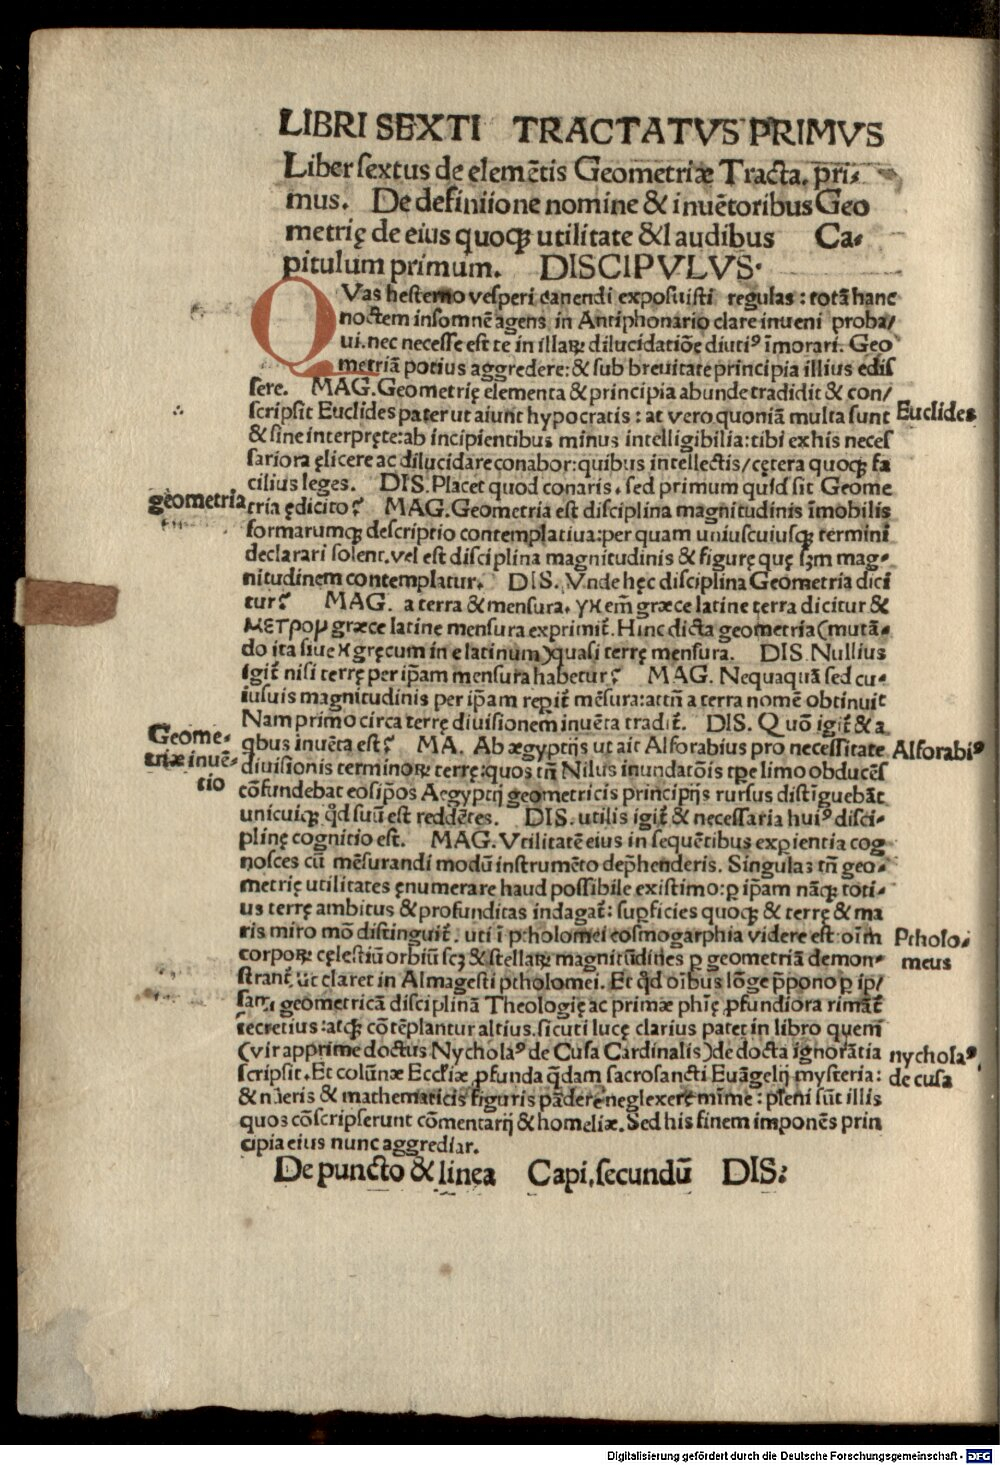 LIBRI SEXTI TRACTATVS PRIMVS
Liber ſextus de elemẽtis Geometriæ Tracta. pri-
mus. De definiione nomine & inuẽtoribus Geo
metrię de eius quoqꝫ utilitate & laudibus Ca-
pitulum primum. DISCIPVLVS.
QVas heſterno veſperi canendi expoſuiſti regulas : totã hanc
noctem inſomnẽ agens in Antiphonario clare inueni proba/
ui. nec neceſſe eſt te in illaꝝ dilucidatiõe diutiꝰ ĩmorari. Geo
metriã potius aggredere: & ſub breuitate principia illius ediſ
ſere. MAG. Geometrię elementa & principia abunde tradidit & con/
ſcripſit Euclides pater ut aiunt hypocratis : at vero quoniã multa ſunt
Euclides
& ſine interpręte: ab incipientibus minus intelligibilia: tibi ex his neceſ
ſariora ęlicere ac dilucidare conabor: quibus intellectis/cętera quoqꝫ fa
cilius leges. DIS. Placet quod conaris. ſed primum quid ſit Geome
geometria
tria ędicito? MAG. Geometria eſt diſciplina magnitudinis ĩmobilis
formarumqꝫ deſcriptio contemplatiua: per quam uniuſcuiuſqꝫ termini
declarari ſolent. vel eſt diſciplina magnitudinis & figurę quę ſꝫm mag-
nitudinem contemplatur. DIS. Vnde hęc diſciplina Geometria dici
tur? MAG. a terra & menſura. γϰ em̃ græce latine terra dicitur &
ΜΕΤΡΟμ græce latine menſura exprimit̃. Hinc dicta geometria (mutã-
do ita ſiue ϰ gręcum in e latinum) quaſi terrę menſura. DIS. Nullius
igit̃ niſi terrę per ip̃am menſura habetur? MAG. Nequaquã ſed cu-
iuſuis magnitudinis per ip̃am repit̃ mẽſura: attñ a terra nomẽ obtinuit
Nam primo circa terrę diuiſionem inuẽta tradit̃. DIS. Quõ igit̃ & a
Geome-
triæ inuẽ-
tio
qbus inuẽta eſt? MA. Ab ægyptijs ut ait Alforabius pro neceſſitate
Alforabiꝰ
diuiſionis terminoꝝ terrę: quos tñ Nilus inundatõis tꝑe limo obducẽs
cõfundebat eo ſip̃os Aegyptij geometricis principijs rurſus diſtĩguebãt
unicuiqꝫ qd̃ ſuũ eſt reddẽtes. DIS. utilis igit̃ & neceſſaria huiꝰ diſci-
plinę cognitio eſt. MAG. Vtilitatẽ eius in ſequẽtibus exꝑientia cog
noſces cũ mẽſurandi modũ inſtrumẽto dep̃henderis. Singulaꝫ tñ geo-
metrię utilitates ęnumerare haud poſſibile exiſtimo: ꝑ ip̃am nãqꝫ toti-
us terrę ambitus & profunditas indagat̃: ſuꝑficies quoqꝫ & terrę & ma
ris miro mõ diſtinguit̃. uti ĩ ptholomei coſmogarphia videre eſt: oĩm
Ptholo-
meus
corpoꝝ cęleſtiũ orbiũ ſcꝫ & ſtellaꝝ magnitũdines ꝑ geometriã demon-
ſtrant̃ ut claret in Almageſti ptholomei. Et qd̃ oĩbus lõge p̃pono ꝑ ip/
ſam geometricã diſciplinã Theologię ac primæ phĩę ꝓfundiora rimãt̃
ſecretius: atqꝫ cõtẽplantur altius. ſicuti lucę clarius patet in libro quem̃
(vir apprime doctus Nycholaꝰ de Cuſa Cardinalis) de docta ignorãtia
nycholaꝰ
de cuſa
ſcripſit. Et colũnæ Eccłiæ ꝓfunda q̃dam ſacroſancti Euãgelij myſteria:
& nũeris & mathematicis figuris pãdere neglexere mĩme: pleni ſũt illis
quos cõſcripſerunt cõmentarij & homeliæ. Sed his finem imponẽs prin
cipia eius nunc aggrediar.
De puncto & linea Capi. ſecundũ DIS:
Digitalisierung gefördert durch die Deutsche Forschungsgemeinschaft - DFG